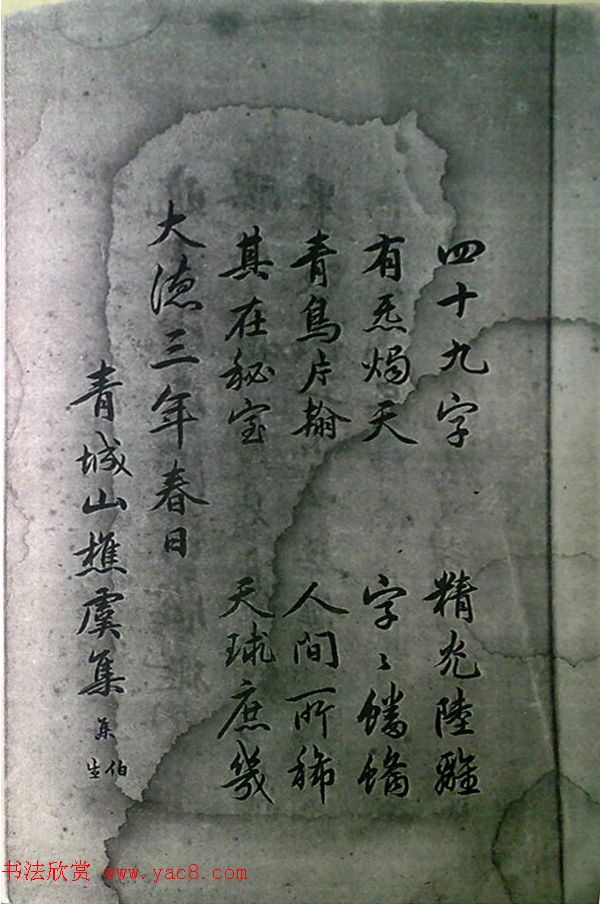 四十九字 精光陸離
有炁燭天 字〻蟠螭
青鳥片翰 人間所稀
其在秘宝 天球庶幾
大德三年春日
青城山樵虞集 集
伯生
书法欣赏 www.yac8.com